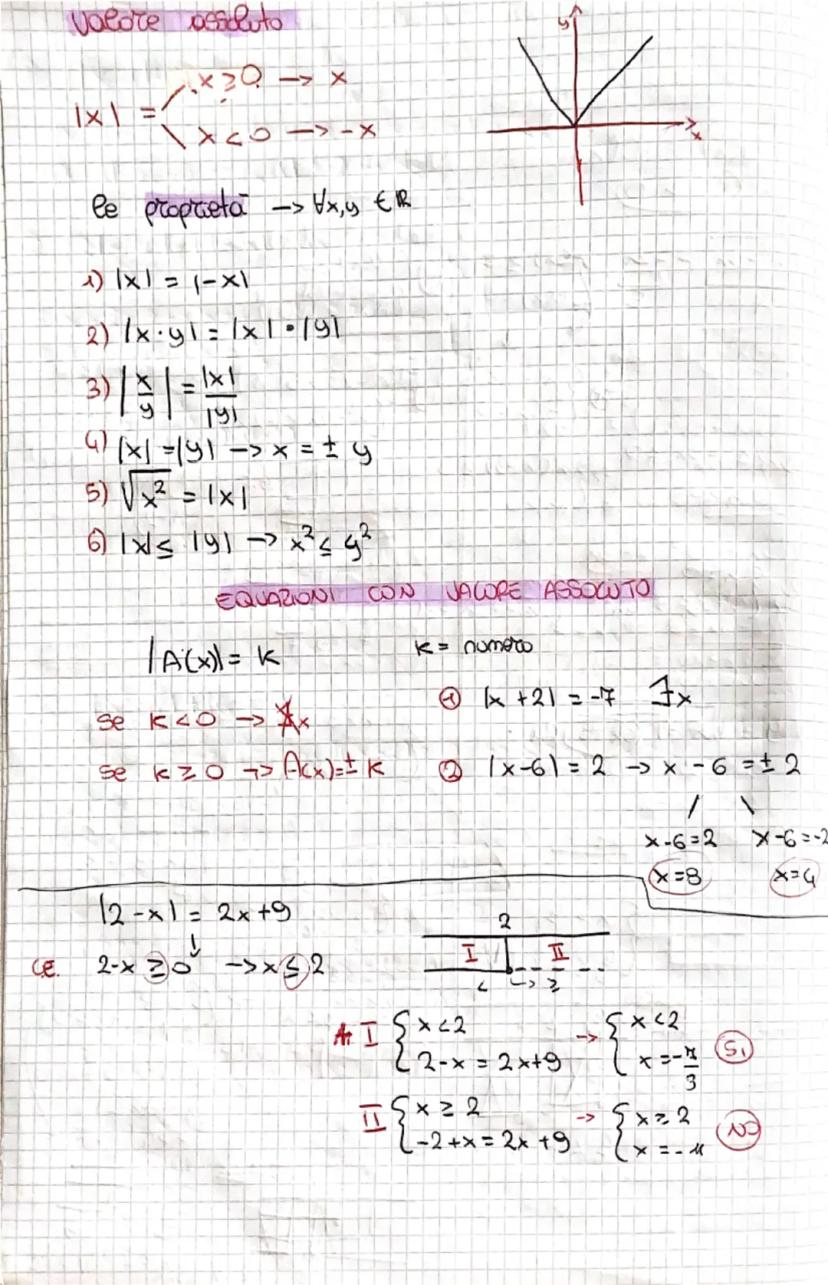 Valore assoluto
y
|x| = x ≥ 0 → x
x < 0 → -x
x
le proprietà → ∀x,y ∈ ℝ
1) |x| = |-x|
2) |x·y| = |x|•|y|
3) |x/y| = |x|/|y|
4) |x| = |y| → x = ± y
5) √x² = |x|
6) |x| ≤ |y| → x² ≤ y²
EQUAZIONI CON VALORE ASSOLUTO
|A(x)| = K K = numero
① |x+2| = -7 ∄x
se K < 0 → ∄x
se K ≥ 0 → A(x) = ± K ② |x-6| = 2 → x - 6 = ± 2
x-6=2 x-6=-2
x=8 x=4
|2-x| = 2x+9
2
C.E. 2-x ≥ 0 → x ≤ 2 I II
< → ≥
I { x<2 → { x<2
2-x = 2x+9 x = -7/3 SI
II { x ≥ 2 → { x ≥ 2
-2+x = 2x+9 x = -11 NO